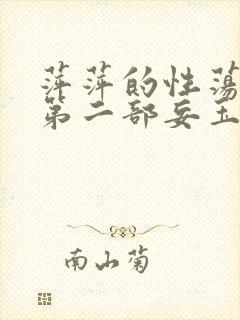 萍萍的性荡
第二部妄玉
南山菊